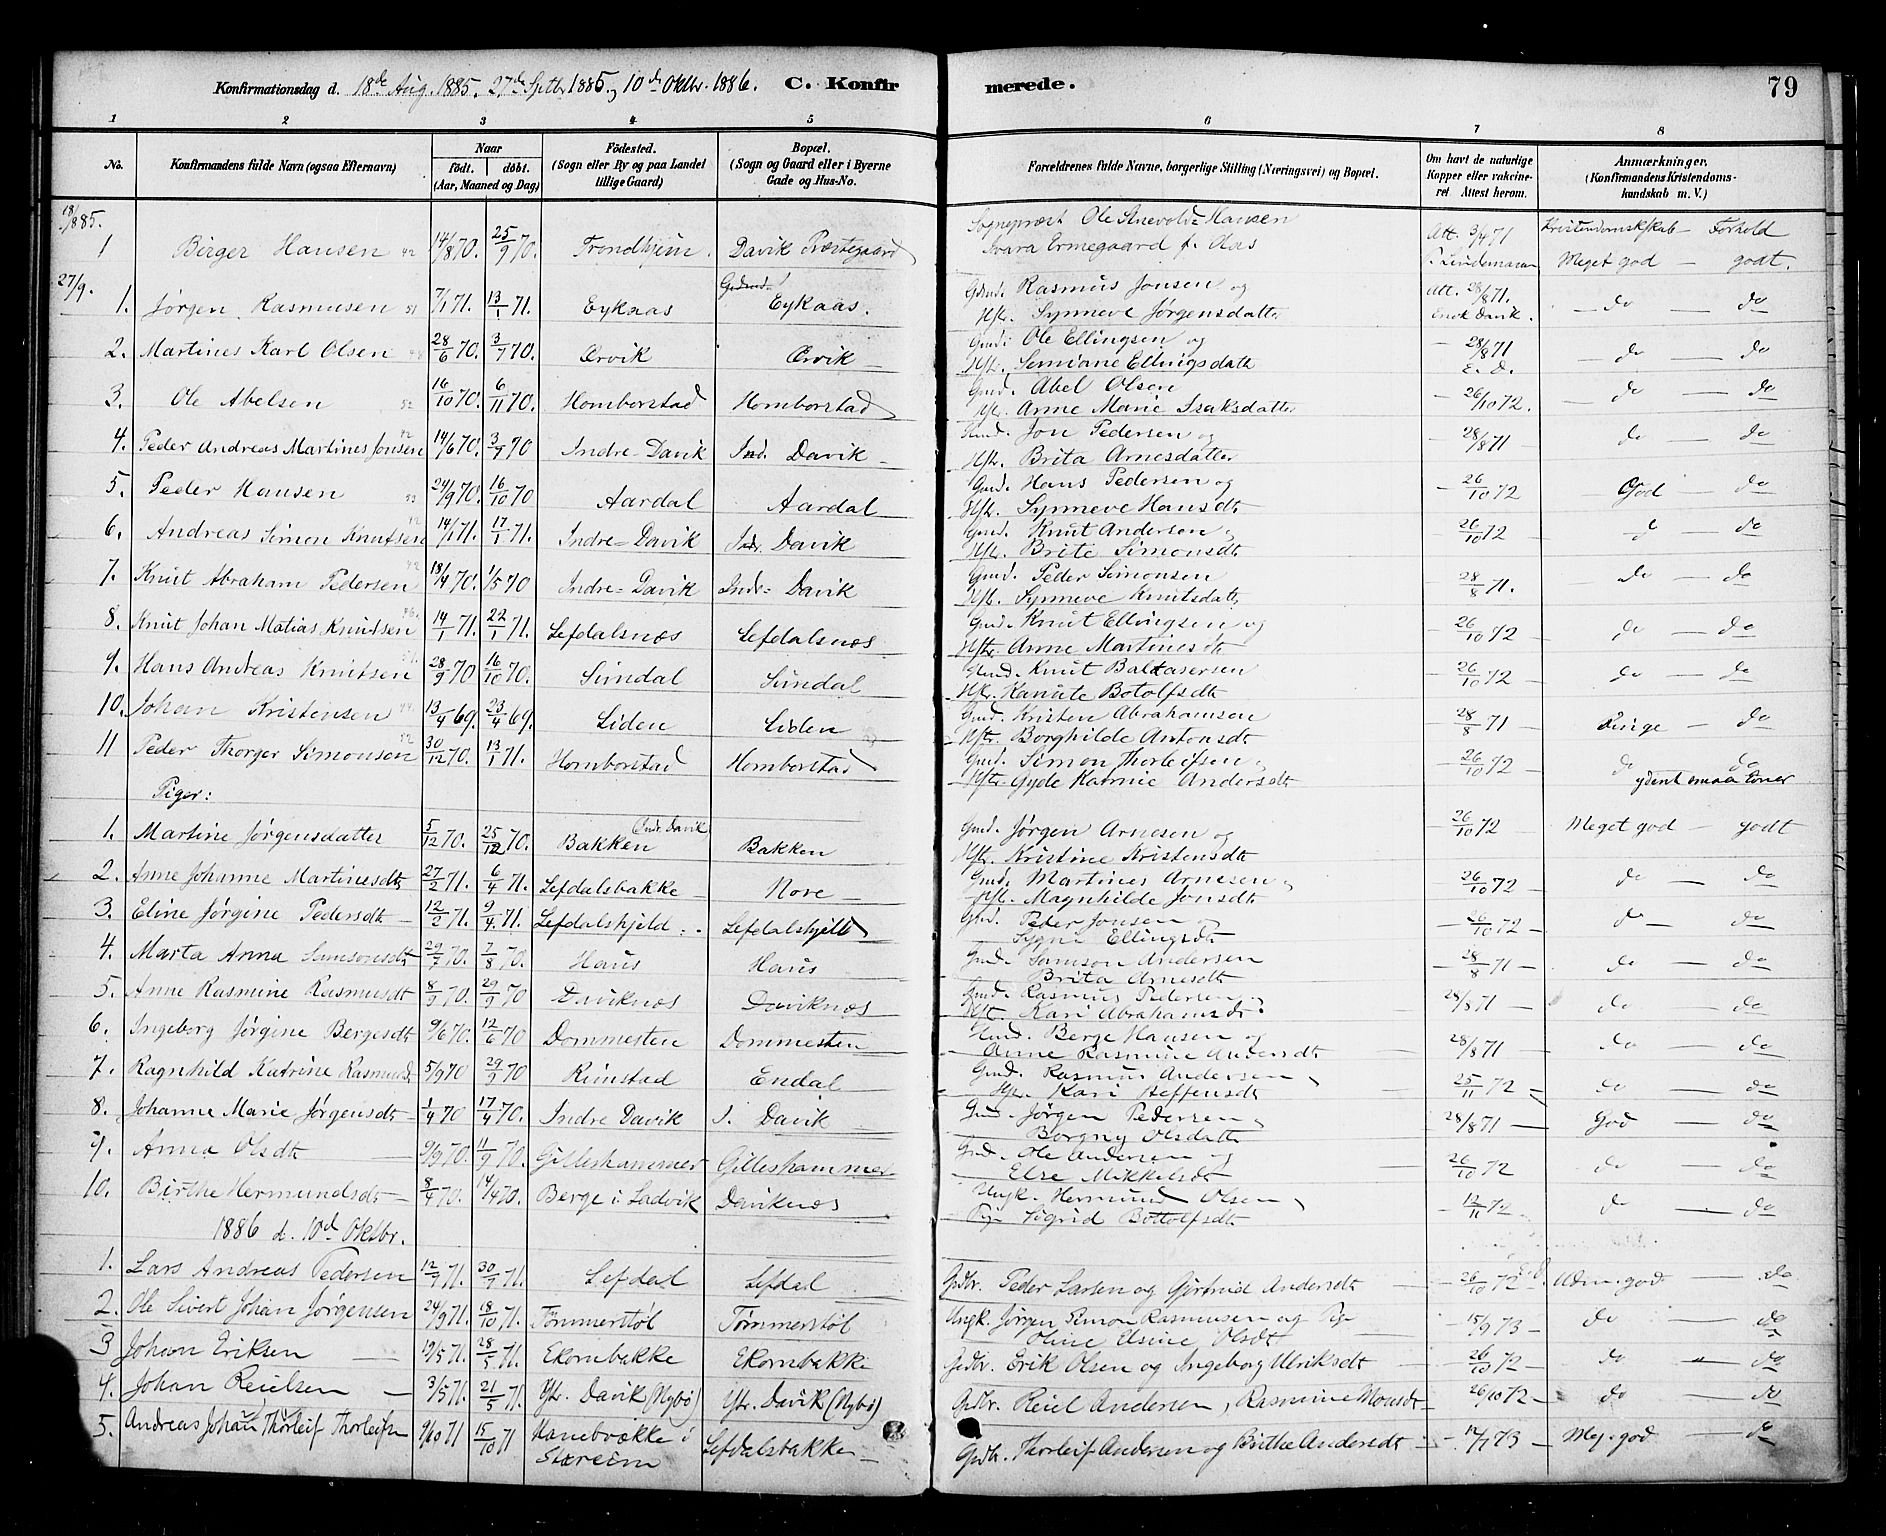 Konfirmationsdag d. 18de Aug. 1885. 27de Septbr 1885, 10de Oktbr. 1886. C. Konfirmerede. 79
1 2 3 4 5 6 7 8
No. Konfirmandens fulde Navn (ogsaa Efternavn) Naar födt. döbt. (Aar, Maaned og Dag) Födested. (Sogn eller By og paa Landet tillige Gaard) Bopæl. (Sogn og Gaard eller i Byerne Gade og Hus-No. Forældrenes fulde Navne, borgerlige Stilling (Næringsvei) og Bopæl. Om havt de naturlige Kopper eller vakcineret Attest herom. Anmærkninger. (Konfirmandens Kristendomskundskab m. V.)
18/8 85.
1 Birger Hansen 14/8 70. 25/9 70. Trondhjem. Davik Præstegaard Sogneprest Ole Hansen Att. 3/4 71 Kristendomskskab — Forhold
Meget god — godt.
27/9.
1. Jørgen Rasmusen 7/1 71. 13/1 71. Eykaas Eykaas. Gdmd. Rasmus Jonsen og Att. 28/8 71. — do — do
Hst. Synneve Jørgensdatter Enok Davik.
2. Martines Karl Olsen 28/6 70. 3/7 70. Ørvik Ørvik Gmd. Ole Ellingsen og — 28/8 71 — do — do
Hst. Semiane Ellingsdatt E. D.
3. Ole Abelsen 16/10 70. 6/11 70. Homborstad Homborstad Gmd. Abel Olsen — 26/10 72. — do — do
Hst. Anne Marie Isaksdatter
4. Peder Andreas Martines Jonsen 14/6 70. 3/7 70 Indre-Davik Ind. Davik Gmd. Jon Pedersen og — 28/8 71 do — do
Hst. Brita Arnesdatter
5. Peder Hansen 24/9 70. 16/10 70 Aardal Aardal Gmd. Hans Pedersen og — 26/10 72 — God — do
Hst. Synneve Hansdt
6. Andreas Simon Knutsen 14/1 71. 17/1 71. Indre-Davik Indr. Davik Gmd. Knut Andersen, 26/10 72 d — do
Hst. Brite Simonsdt
7. Knut Abraham Pedersen 18/4 70. 1/5 70 Indre-Davik Indr- Davik Gmd. Peder Simonsen 28/8 71. do — do
Hst. Synneve Knutsdatt
8. Knut Johan Matias Knudsen 14/1 71. 22/1 71. Lefdalsnæs Lefdalsnæs Gmd. Knut Ellingsen og 26/10 72 do — do
Hst. Anne Martinesdt
9. Hans Andreas Knutsen 28/9 70 16/10 70. Sundal Sundal Gmd. Knut Baltasersen — 26/10 72 do — do
Hst. Botolfsdt
10. Johan Kristensen 13/4 69. 23/4 69. Liden Liden Gmd. Kristen Abrahamsen — 28/8 71 — do
Hst. Borghilde Antonsdt
11 Peder Thorger Simonsen 30/12 70. 13/1 71. Homborstad Homborstad Gmd. Simon Thorleifsen, 26/10 72 d do
Hst. Gyde Andersdt
Piger:
1. Martine Jørgensdatter 5/12 70. 25/12 70. Bakken Indr. Davik Bakken Gmd. Jørgen Arnesen og — 26/10 72 Meget god — godt
Hst. Kristine Kristensdt
2. Anne Johanne Martinesdt 27/2 71. 6/4 71. Lefdalsbakke Nore Gmd. Martines Arnesen, 26/10 72 — do — do
Hst. Magnhilde Jonsdt
3. Eline Jørgine Pedersdt 12/2 71. 9/4. 71. Lefdalskjeld Lefdalskjeld Gmd. Peder Jonsen — 26/10 72 — do — do
Ellingsdt
4. Marta Anna Samsonsdt 29/7 70. 7/8 70. Haus Haus Gmd. Samson Andersen — 28/8 71 — do — do
Brita Arnesdt
5. Anne Rasmine Rasmusdt 8/9 70. 29/9 70 Daviknæs Daviknæs Gmd. Rasmus Pedersen 28/8 71 — do — do
Hst. Kari Abrahamsdt
6. Ingeborg Jørgine Bergesdt 9/6 70. 12/6 70 Dommesten Dommesten Gmd. Berge Hansen og 28/8 71 do — do
Anne Rasmine Andersdt
7. Ragnhild Katrine Rasmusdt 5/9 70 29/9 70 Rimstad Endal Gmd. Rasmus Andersen, 25/11 72 do — do
Hst. Kari Steffensdt
8. Johanne Marie Jørgensdt 1/4 70 17/4 70. Indre Davik I. Davik Gmd. Jørgen Pedersen, 28/8 71 — God — do
Borgny Olsdatt
9. Anna Olsdt 9/9 70. 11/9 70. Gilleshammer Gilleshammer Gmd. Ole Andersen og 26/10 72 do — do
Else Mikkelsdt
10. Birthe Hermundsdt 8/4 70. 14/4 70. Berge i Ladvik Daviknæs Ungk. Hermund Olsen, — 12/11 72 do — do
Pige Sigrid Bottolfsdt
1886 d. 10d Oktbr.
1. Lars Andreas Pedersen 12/7 71. 30/7 71. Lefdal Lefdal Gdbr. Peder Larsen og Gjertrud Andersdt — 26/10 72 Udm. god — do
2. Ole Sivert Johan Jørgensen 24/9 71. 18/10 71. Tømmerstøl Tømmerstøl Ungk. Jørgen Simon Rasmussen og Pige — 15/9 73 — do — do
Oline Elsine Olsdt
3 Johan Eriksen 19/5 71. 28/5 71. Ekornbakke Ekornbakke Gdbr. Erik Olsen og Ingeborg Ulriksdt — 26/10 72 — do " do
4. Johan Reielsen 3/5 71. 21/5 71. Ytr. Davik (Nybø) Ytr. Davik (Nybø) Gdbr. Reiel Andersen, Rasmine Monsdt — 26/10 72 — do — do
5. Andreas Johan Thorleif Thorleifsen 9/10 71 15/10 71 Hanebrække i Lefdalsbakken — Gdbr. Thorleif Andersen og Birthe Andersdt — 73 — Meg. god — do
Stareim